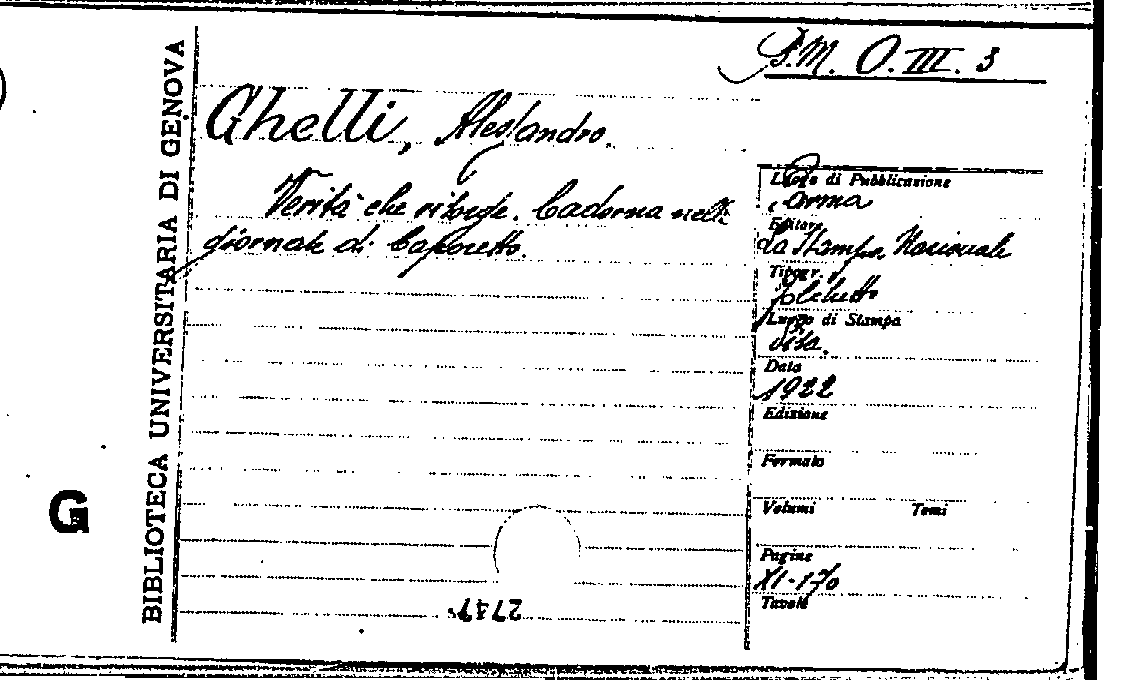 P.M. O.III. 3
BIBLIOTECA UNIVERSITARIA DI GENOVA
Ghelli, Alessandro.
Verità che risorge. Cadorna nelle
giornate di Caporetto.
Luogo di Pubblicazione
Roma
Editore
La Stampa Nazionale
Tipogr.
Luogo di Stampa
ivi.
Data
1922
Edizione
Formato
Volumi Tomi
Pagine
XI-170
Tavole
G